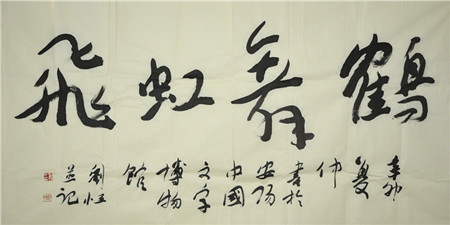 鶴舞虹飛
辛卯
夏
仲
書於
安陽
中國
文字
博物
館
劉恒
並記